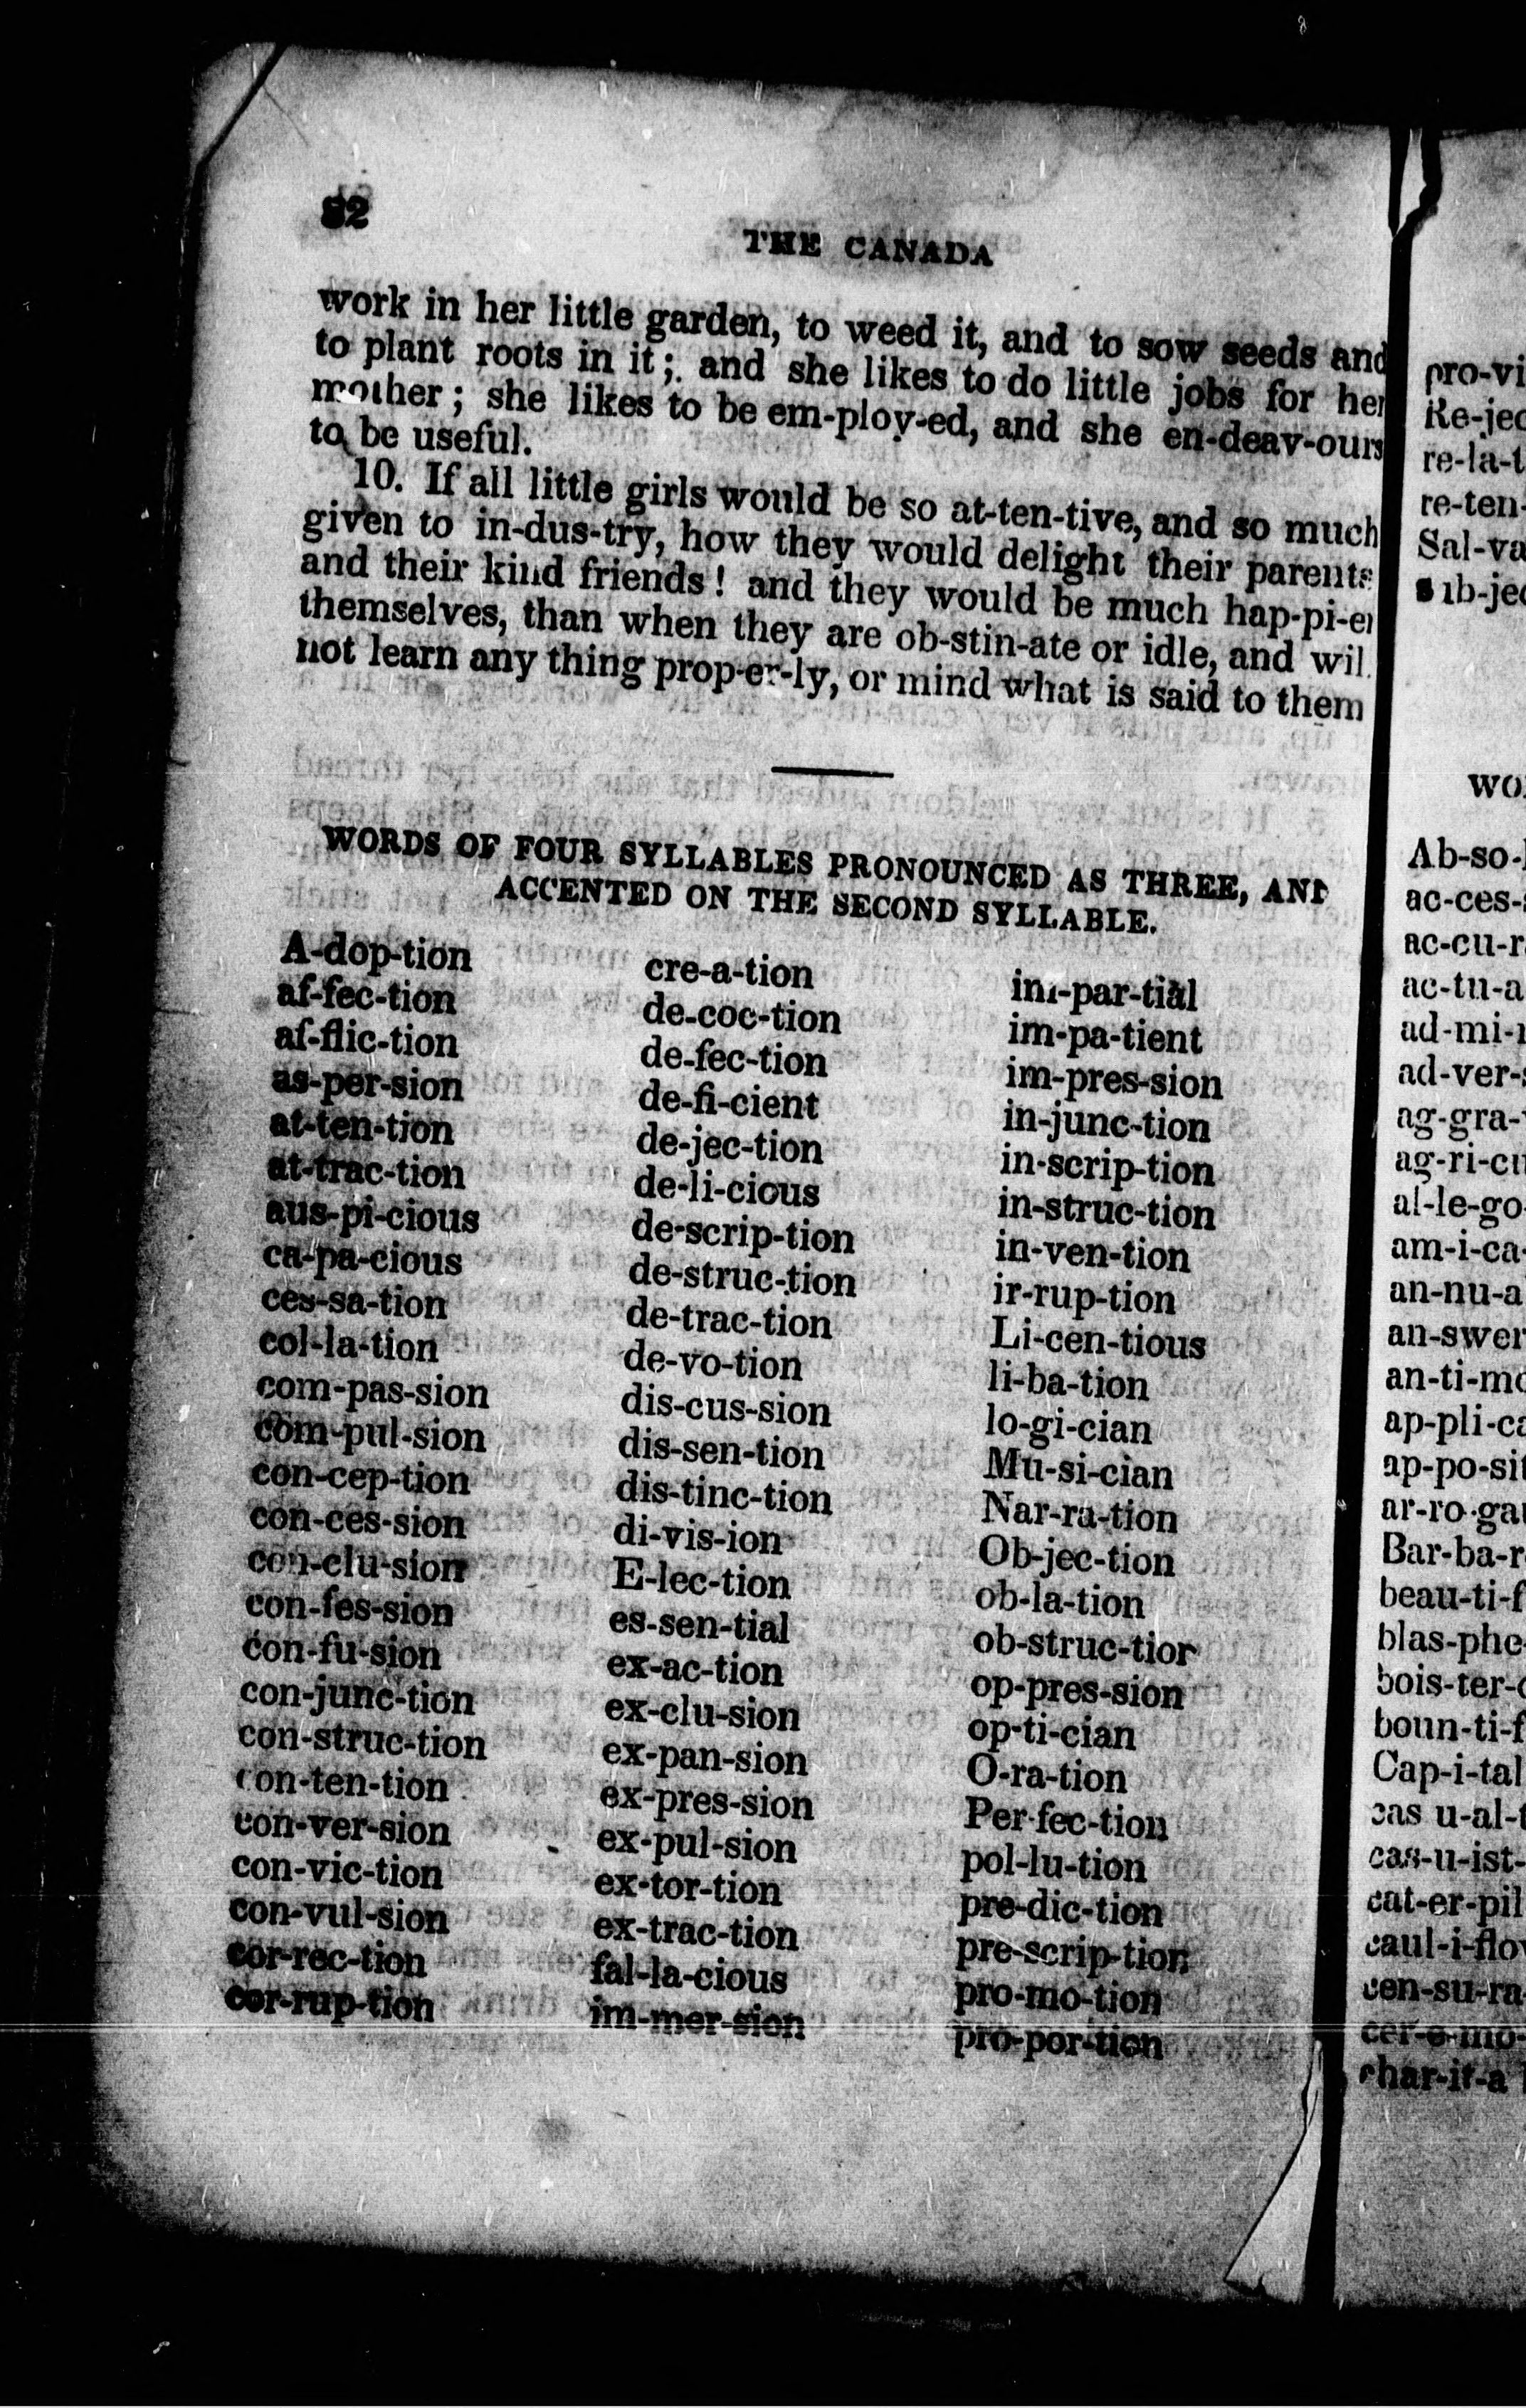 82
THE CANADA
work in her little garden, to weed it, and to sow seeds and
to plant roots in it; and she likes to do little jobs for her
mother; she likes to be em-ploy-ed, and she en-deav-ours
to be useful.
10. If all little girls would be so at-ten-tive, and so much
given to in-dus-try, how they would delight their parents
and their kind friends! and they would be much hap-pi-er
themselves, than when they are ob-stin-ate or idle, and wil
not learn any thing prop-er-ly, or mind what is said to them
WORDS OF FOUR SYLLABLES PRONOUNCED AS THREE, AND
ACCENTED ON THE SECOND SYLLABLE.
A-dop-tion
af-fec-tion
af-flic-tion
as-per-sion
at-ten-tion
at-trac-tion
aus-pi-cious
ca-pa-cious
ces-sa-tion
col-la-tion
com-pas-sion
com-pul-sion
con-cep-tion
con-ces-sion
con-clu-sion
con-fes-sion
con-fu-sion
con-junc-tion
con-struc-tion
con-ten-tion
con-ver-sion
con-vic-tion
con-vul-sion
cor-rec-tion
cor-rup-tion
cre-a-tion
de-coc-tion
de-fec-tion
de-fi-cient
de-jec-tion
de-li-cious
de-scrip-tion
de-struc-tion
de-trac-tion
de-vo-tion
dis-cus-sion
dis-sen-tion
dis-tinc-tion
di-vis-ion
E-lec-tion
es-sen-tial
ex-ac-tion
ex-clu-sion
ex-pan-sion
ex-pres-sion
ex-pul-sion
ex-tor-tion
ex-trac-tion
fal-la-cious
im-mer-sion
im-par-tial
im-pa-tient
im-pres-sion
in-junc-tion
in-scrip-tion
in-struc-tion
in-ven-tion
ir-rup-tion
Li-cen-tious
li-ba-tion
lo-gi-cian
Mu-si-cian
Nar-ra-tion
Ob-jec-tion
ob-la-tion
ob-struc-tion
op-pres-sion
op-ti-cian
O-ra-tion
Per-fec-tion
pol-lu-tion
pre-dic-tion
pre-scrip-tion
pro-mo-tion
pro-por-tion
pro-vi
Re-jec
re-la-t
re-ten-
Sal-va
sub-jec
WO
Ab-so-
ac-ces-
ac-cu-r
ac-tu-a
ad-mi-
ad-ver-
ag-gra-
ag-ri-cu
al-le-go-
am-i-ca-
an-nu-a
an-swer
an-ti-mo
ap-pli-ca
ap-po-sit
ar-ro-gan
Bar-ba-r
beau-ti-f
blas-phe-
bois-ter-o
boun-ti-f
Cap-i-tal
cas-u-al-t
cas-u-ist-
cat-er-pil
caul-i-flow
cen-su-ra-
cer-e-mo-
char-it-a